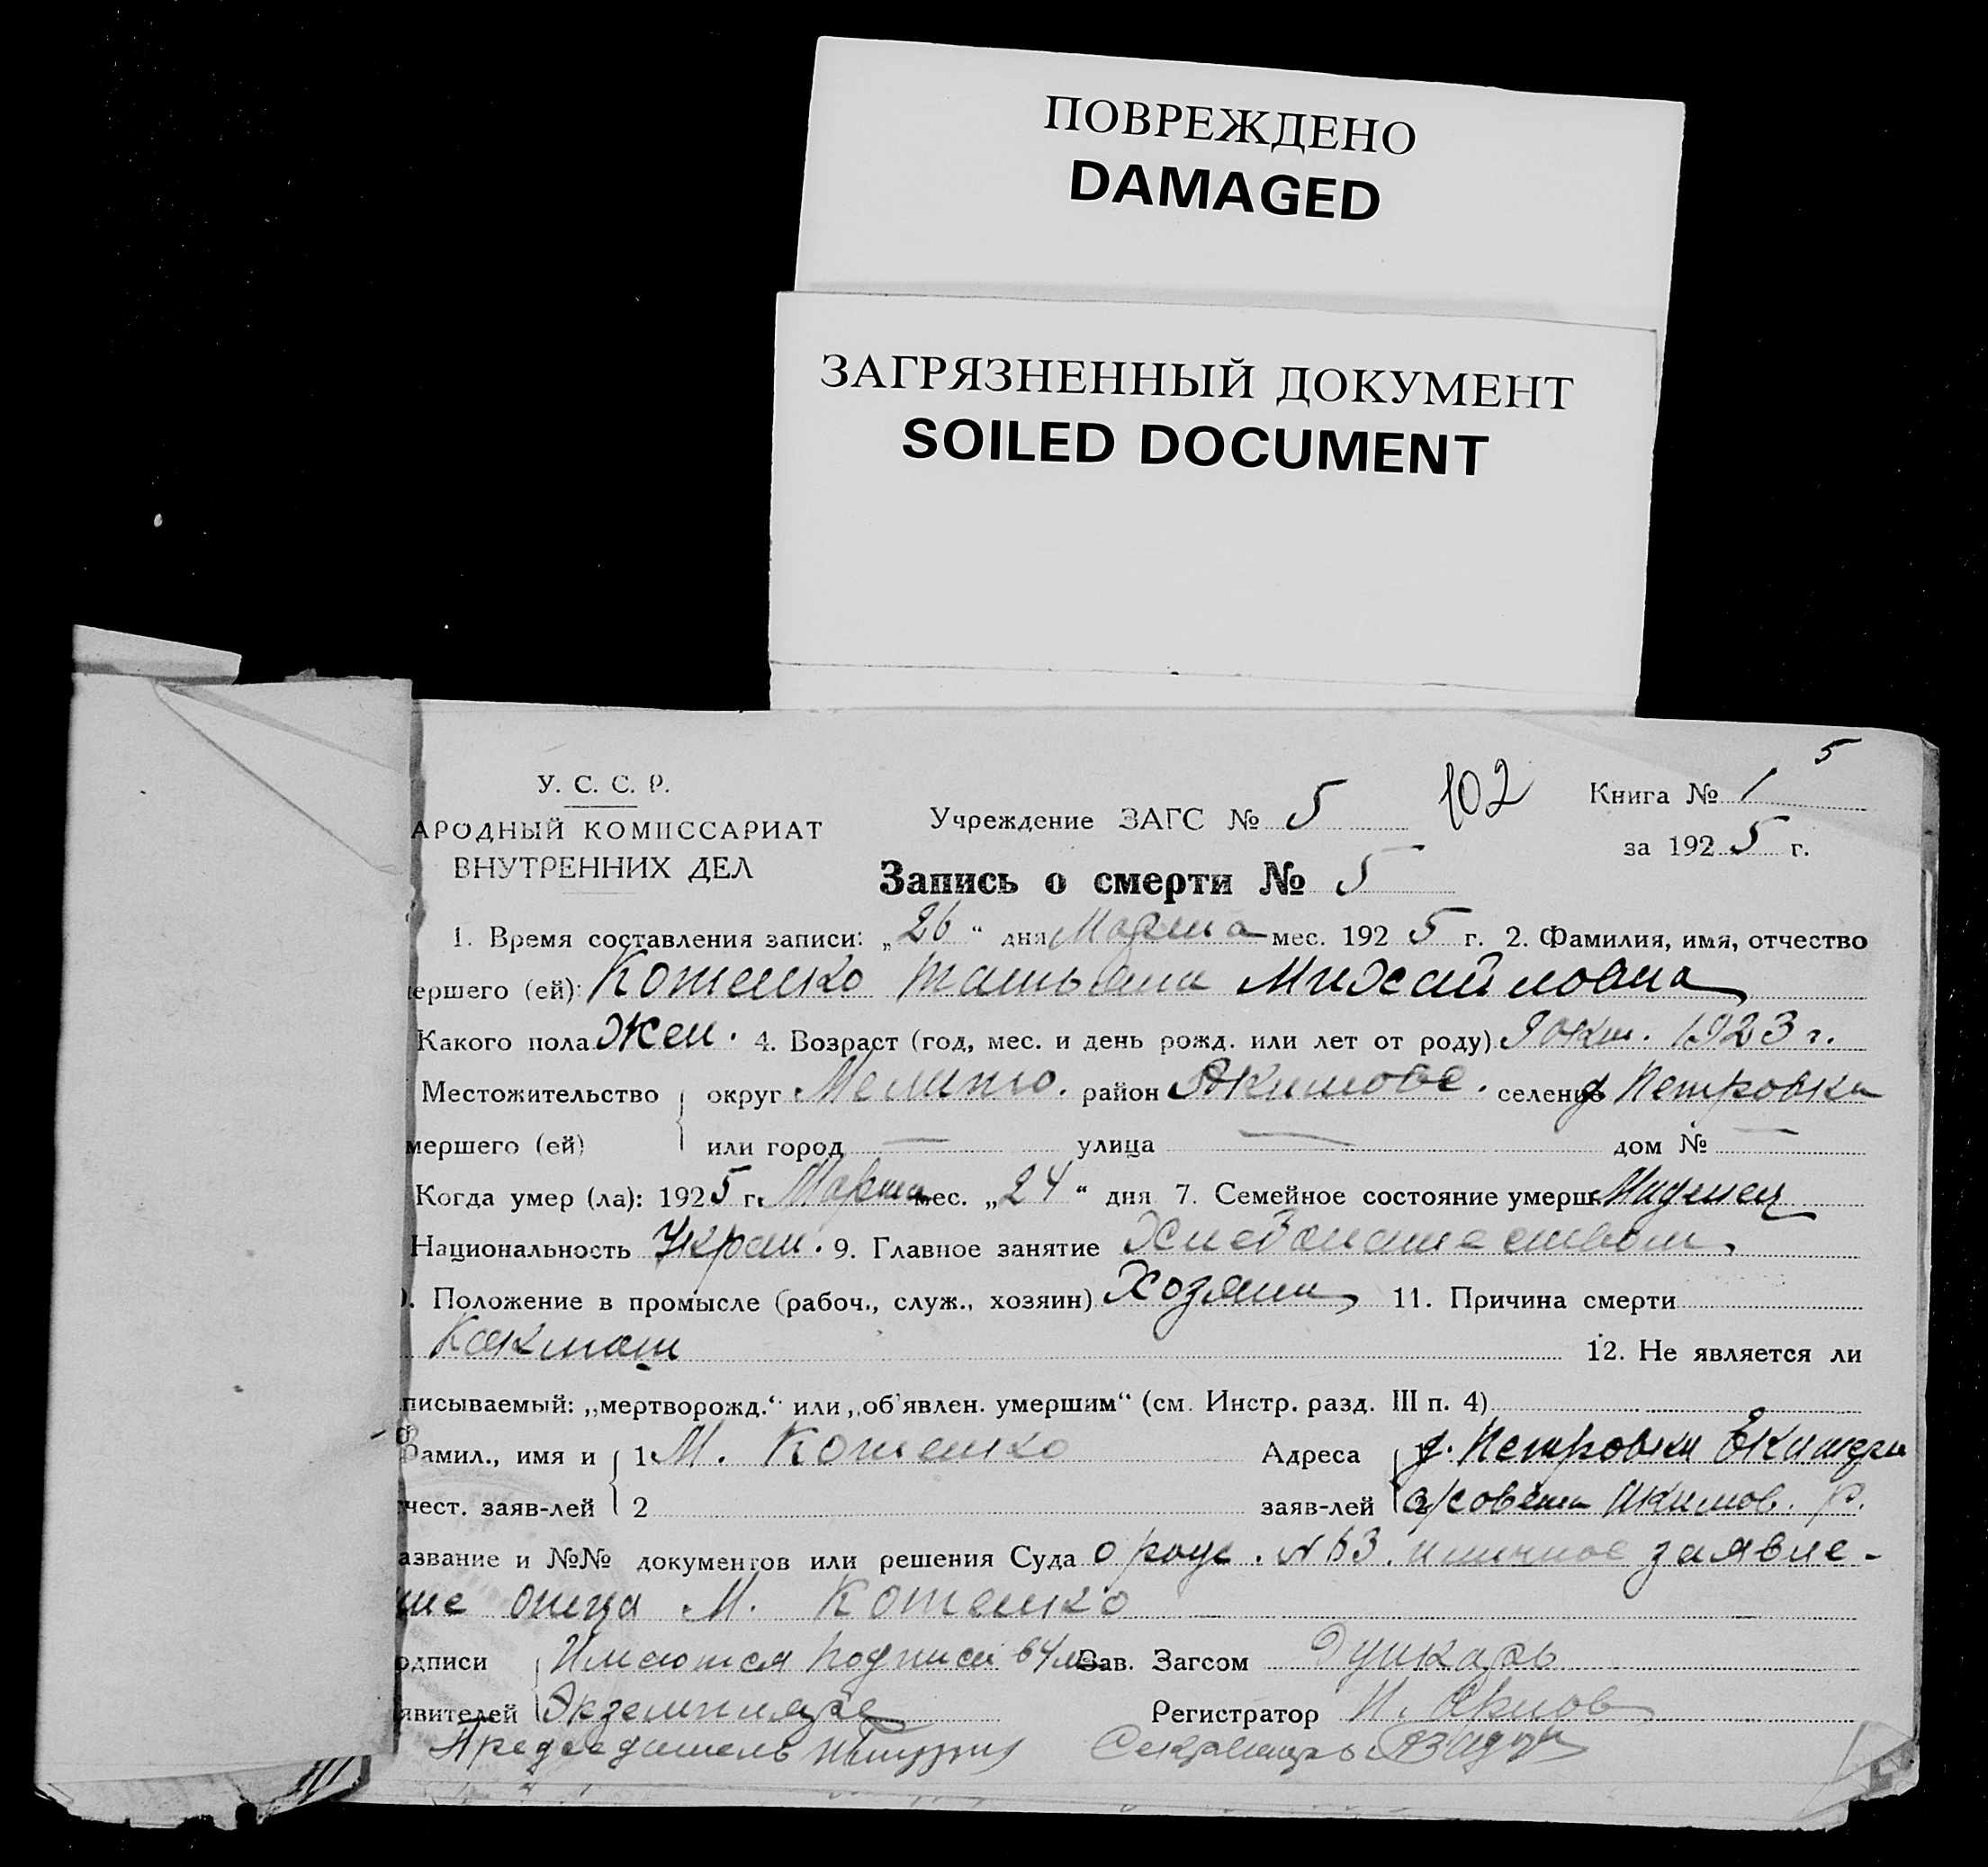 ПОВРЕЖДЕНО
DAMAGED
ЗАГРЯЗНЕННЫЙ ДОКУМЕНТ
SOILED DOCUMENT
5
У. С. С. Р.
АРОДНЫЙ КОМИССАРИАТ
ВНУТРЕННИХ ДЕЛ
Учреждение ЗАГС № 5 102 Книга № 1
за 1925 г.
Запись о смерти № 5
1. Время составления записи: „26“ дня Марта мес. 1925 г. 2. Фамилия, имя, отчество
ершего (ей): Котенко Татьяна Михайловна
Какого пола Жен. 4. Возраст (год, мес. и день рожд. или лет от роду) 9 окт. 1923 г.
Местожительство округ Мелито. район Якимове. селение д. Петровка
мершего (ей) или город — улица — дом № —
Когда умер (ла): 1925 г. Марта мес. „24“ дня 7. Семейное состояние умерш. Младенец
Национальность Украи. 9. Главное занятие
Положение в промысле (рабоч., служ., хозяин) Хозяин 11. Причина смерти
12. Не является ли
писываемый: „мертворожд.“ или „об'явлен. умершим“ (см. Инстр. разд. III п. 4)
Фамил., имя и 1 М. Котенко Адреса д. Петровки
чест. заяв-лей 2 заяв-лей с/совета Якимов. р.
азвание и №№ документов или решения Суда о рожд. № 63. и личное заявле-
ние отца М. Котенко
одписи Имеются подписи в 1/м Зав. Загсом
явителей Экземпляре Регистратор
Председатель Секретарь